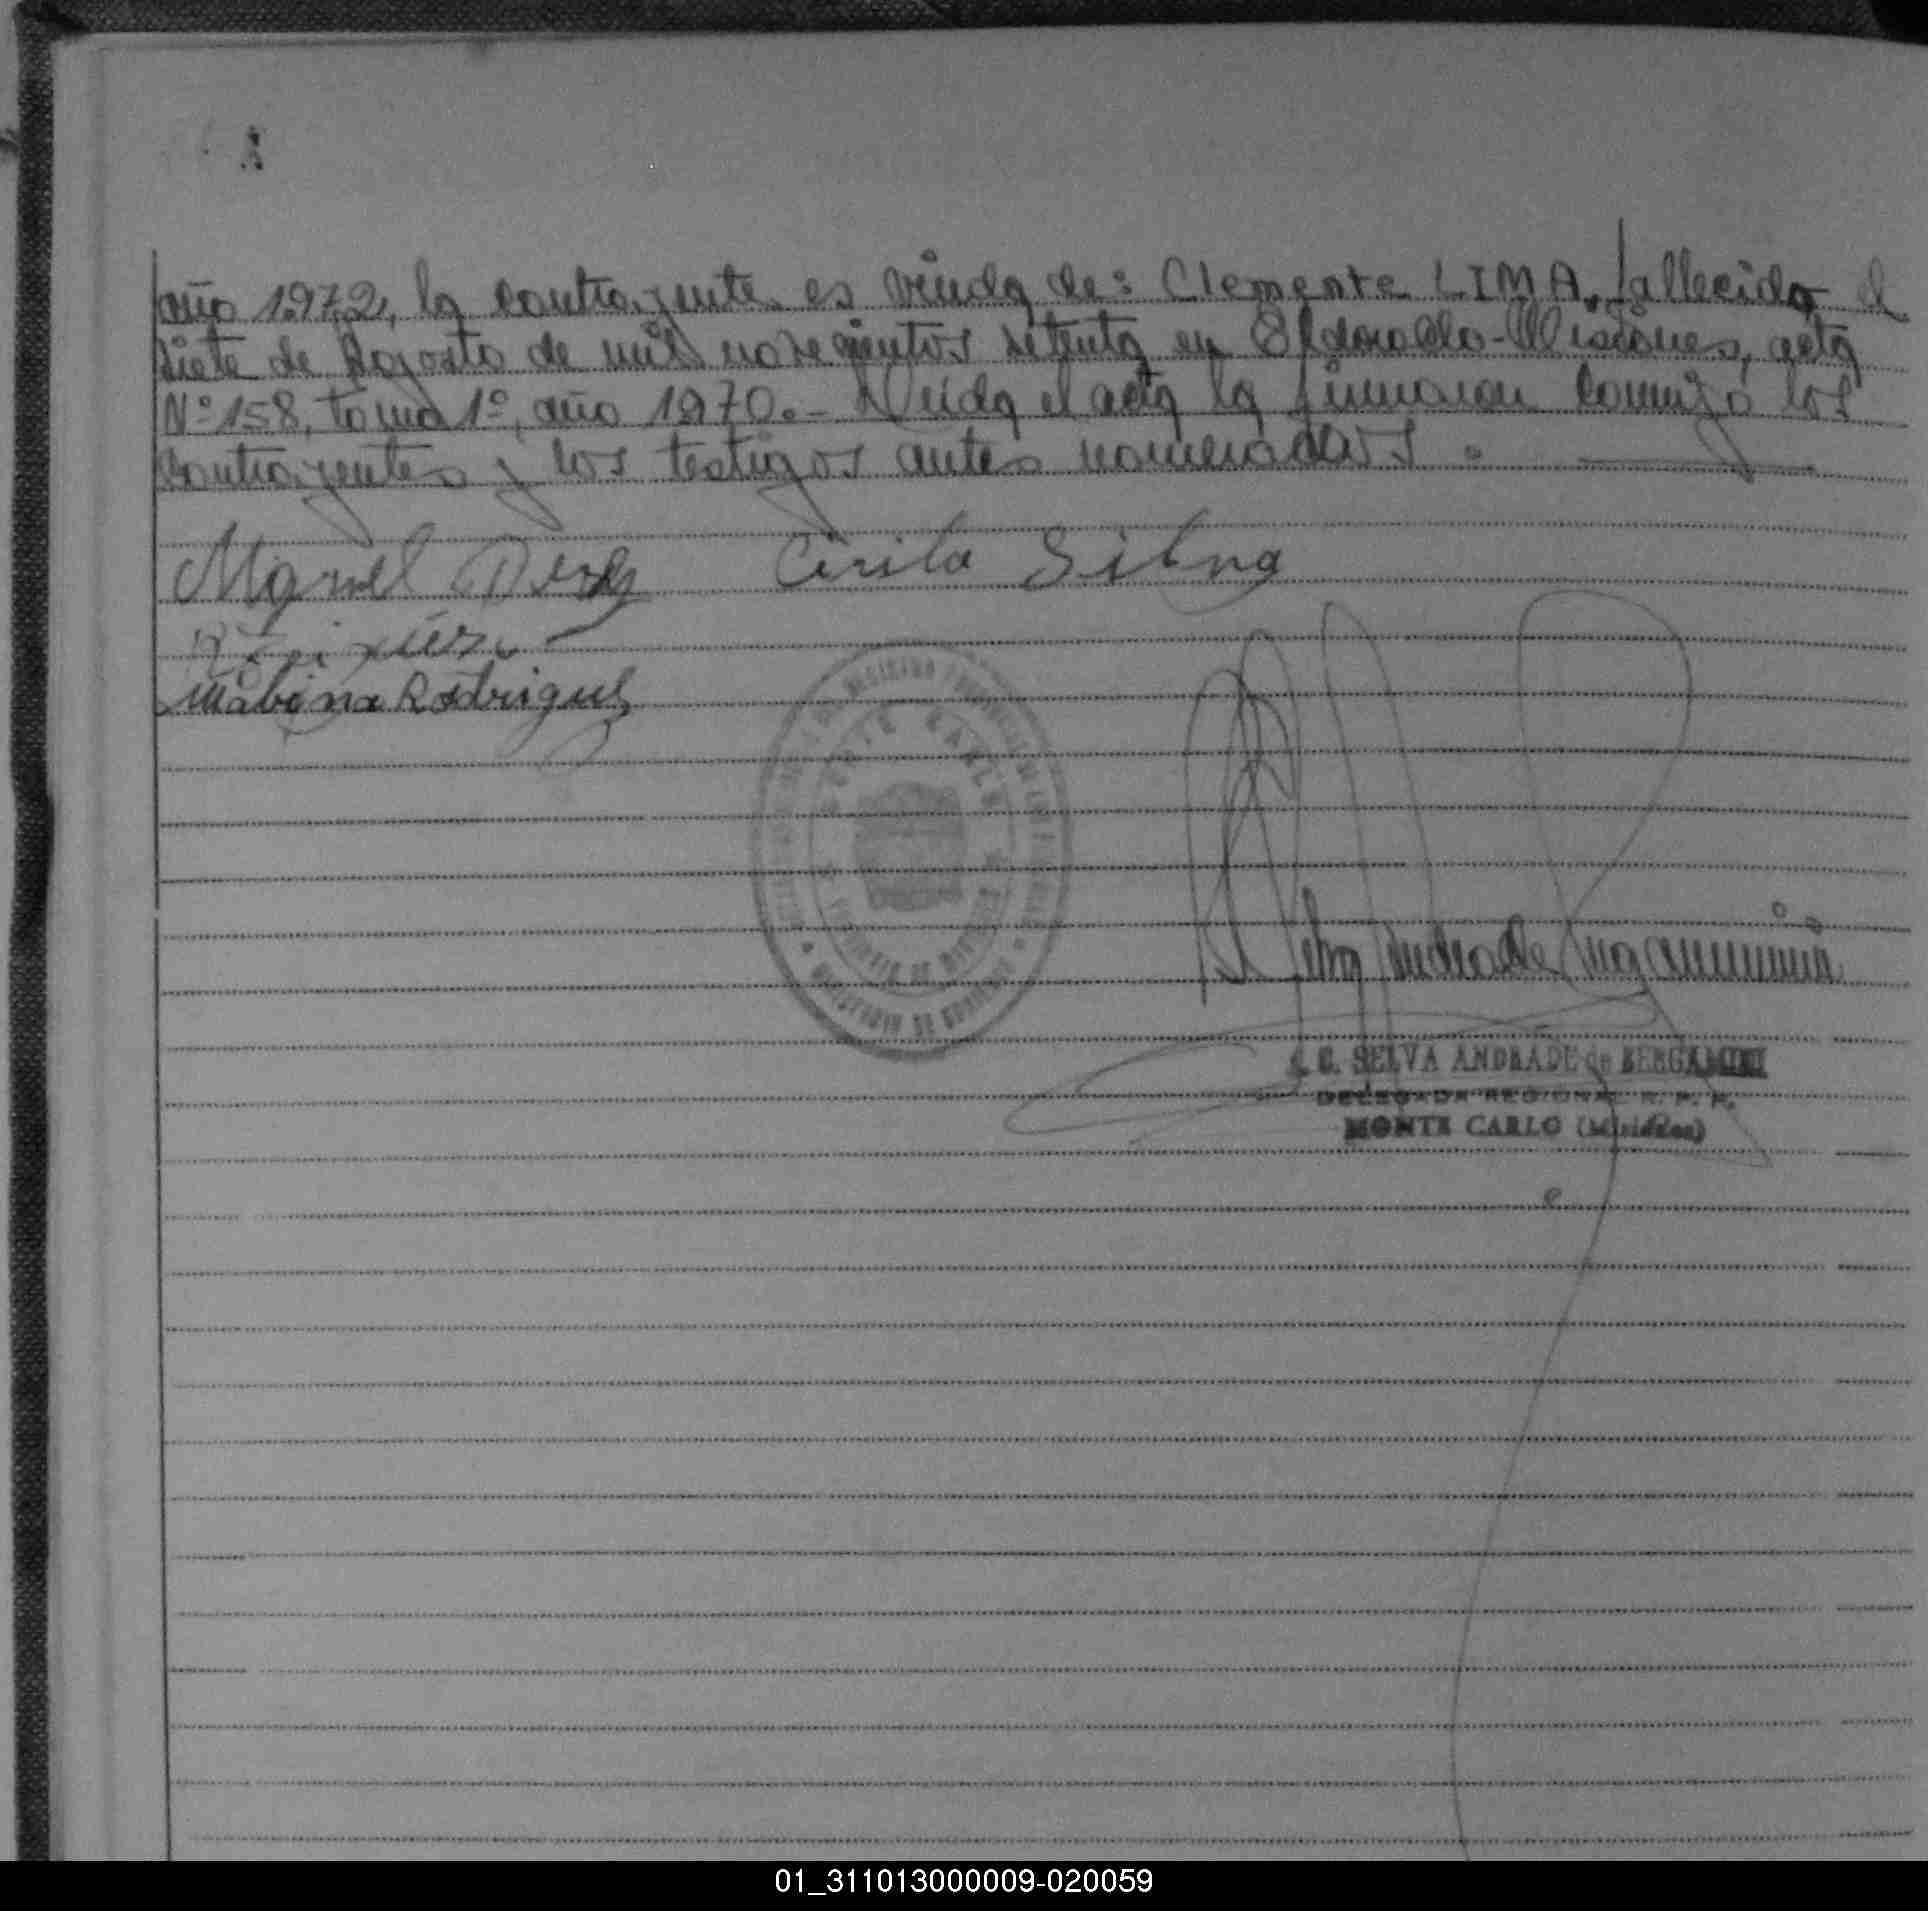 año 1972, la contrayente es viuda de: Clemente LIMA, fallecido el
siete de Agosto de mil novecientos setenta en Eldorado-Misiones, acta
Nº 158, tomo 1º, año 1970.- Leída el acta la firmaron conmigo los
contrayentes y los testigos antes nomenados.
Miguel Perez Cirila Silva
Mabina Rodriguez
Selva Andrade Bergamini
S. C. SELVA ANDRADE de BERGAMINI
DELEGADA REGIONAL R. P. P.
MONTE CARLO (Misiones)
01_311013000009-020059